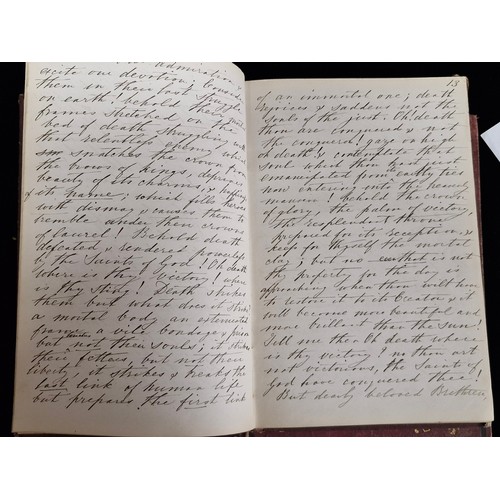 admiration
excite our devotion! Consider
them in their last struggle
on earth! behold their
frames stretched on the
bed of death struggling with
that relentless enemy which
snatches the crown from
the brow of kings, deprives
beauty of its charms, &
its name, which fills heroes
with dismay & causes them to
tremble under their crowns
of laurel! Behold death
defeated & rendered powerless
by the Saints of God! Oh death
where is thy victory! where
is thy sting! Death strikes
them but what does it strike
a mortal body an external
frame a vile bondage, prison
but not their souls; it strikes
their fetters, but not their
liberty, it strikes & breaks the
last link of human life
but prepares the first link
13
of an immortal one; death
rejoices & saddens not the
souls of the just. Oh death
thou art conquered & not
the conqueror! gaze on high
oh death! & contemplate that
soul which thou hast just
emancipated from earthly ties
now entering into the heavenly
mansion! behold the crown
of glory, the palm of victory,
the resplendent throne
prepared for its reception, &
keep for thyself the mortal
clay; but no that is not
thy property for the day is
approaching when thou wilt have
to restore it to its Creator & it
will become more beautiful and
more brilliant than the Sun!
Tell me then Oh death where
is thy victory? no thou art
not victorious, the Saints of
God have conquered thee!
But dearly beloved Brethren